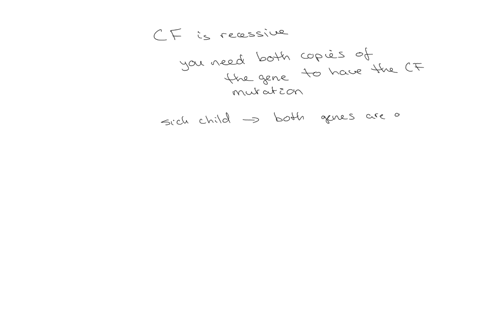 CF is recessive
you need both copies of
the gene to have the CF
mutation
sick child → both genes are